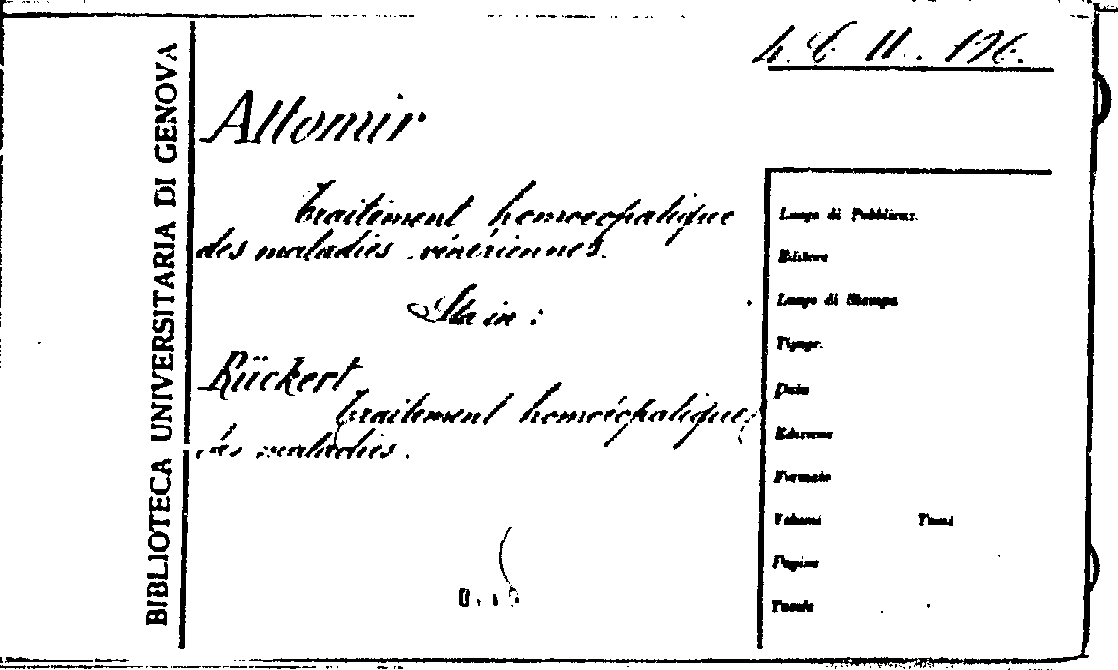 BIBLIOTECA UNIVERSITARIA DI GENOVA
4. C. II. 126.
Attomir
Traitement homoeopatique
des maladies vénériennes.
Sta in:
Rückert
Traitement homoéopatique
des maladies.
Luogo di Pubblicaz.
Editore
Luogo di Stampa
Tipogr.
Data
Edizione
Formato
Volumi Tomi
Pagine
Tavole